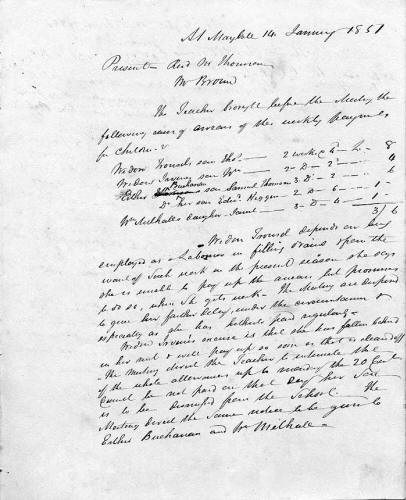 At Maybole 14 January 1851
Present Revd Mr Thomson
Mr Brown
The Teacher brought before the Meeting the
following cases of arrears of the weekly payments
for Children
Widow son Thos — 2 weeks @ 4 — 8
Widow son Wm — 2 — D — 2 — 4
Esther Buchanan son Samuel Thomson 3 D — 2 — 6
Do her son Edwd 2 — D — 6 — 1 -
Wm daughter Janet — 3 — D — 4 — 1 -
3/6
Widow depends on being
employed as a Labourer in filling drains upon the
want of such work in the present season she says
she is unable to pay up the arrears but promises
to do so, when she gets work - The Meeting are disposed
to give her further delay, under the circumstances &
especially as she has hitherto paid regularly -
Widow excuse is that she has fallen behind
in her rent & will pay up so soon as that is cleared off
- The Meeting direct the Teacher to intimate she
if the whole allowances up to monday the 20 Curt
Current be not paid on that day her son
is to be dismissed from the School. The
Meeting direct the same notice to be given to
Esther Buchanan and Wm